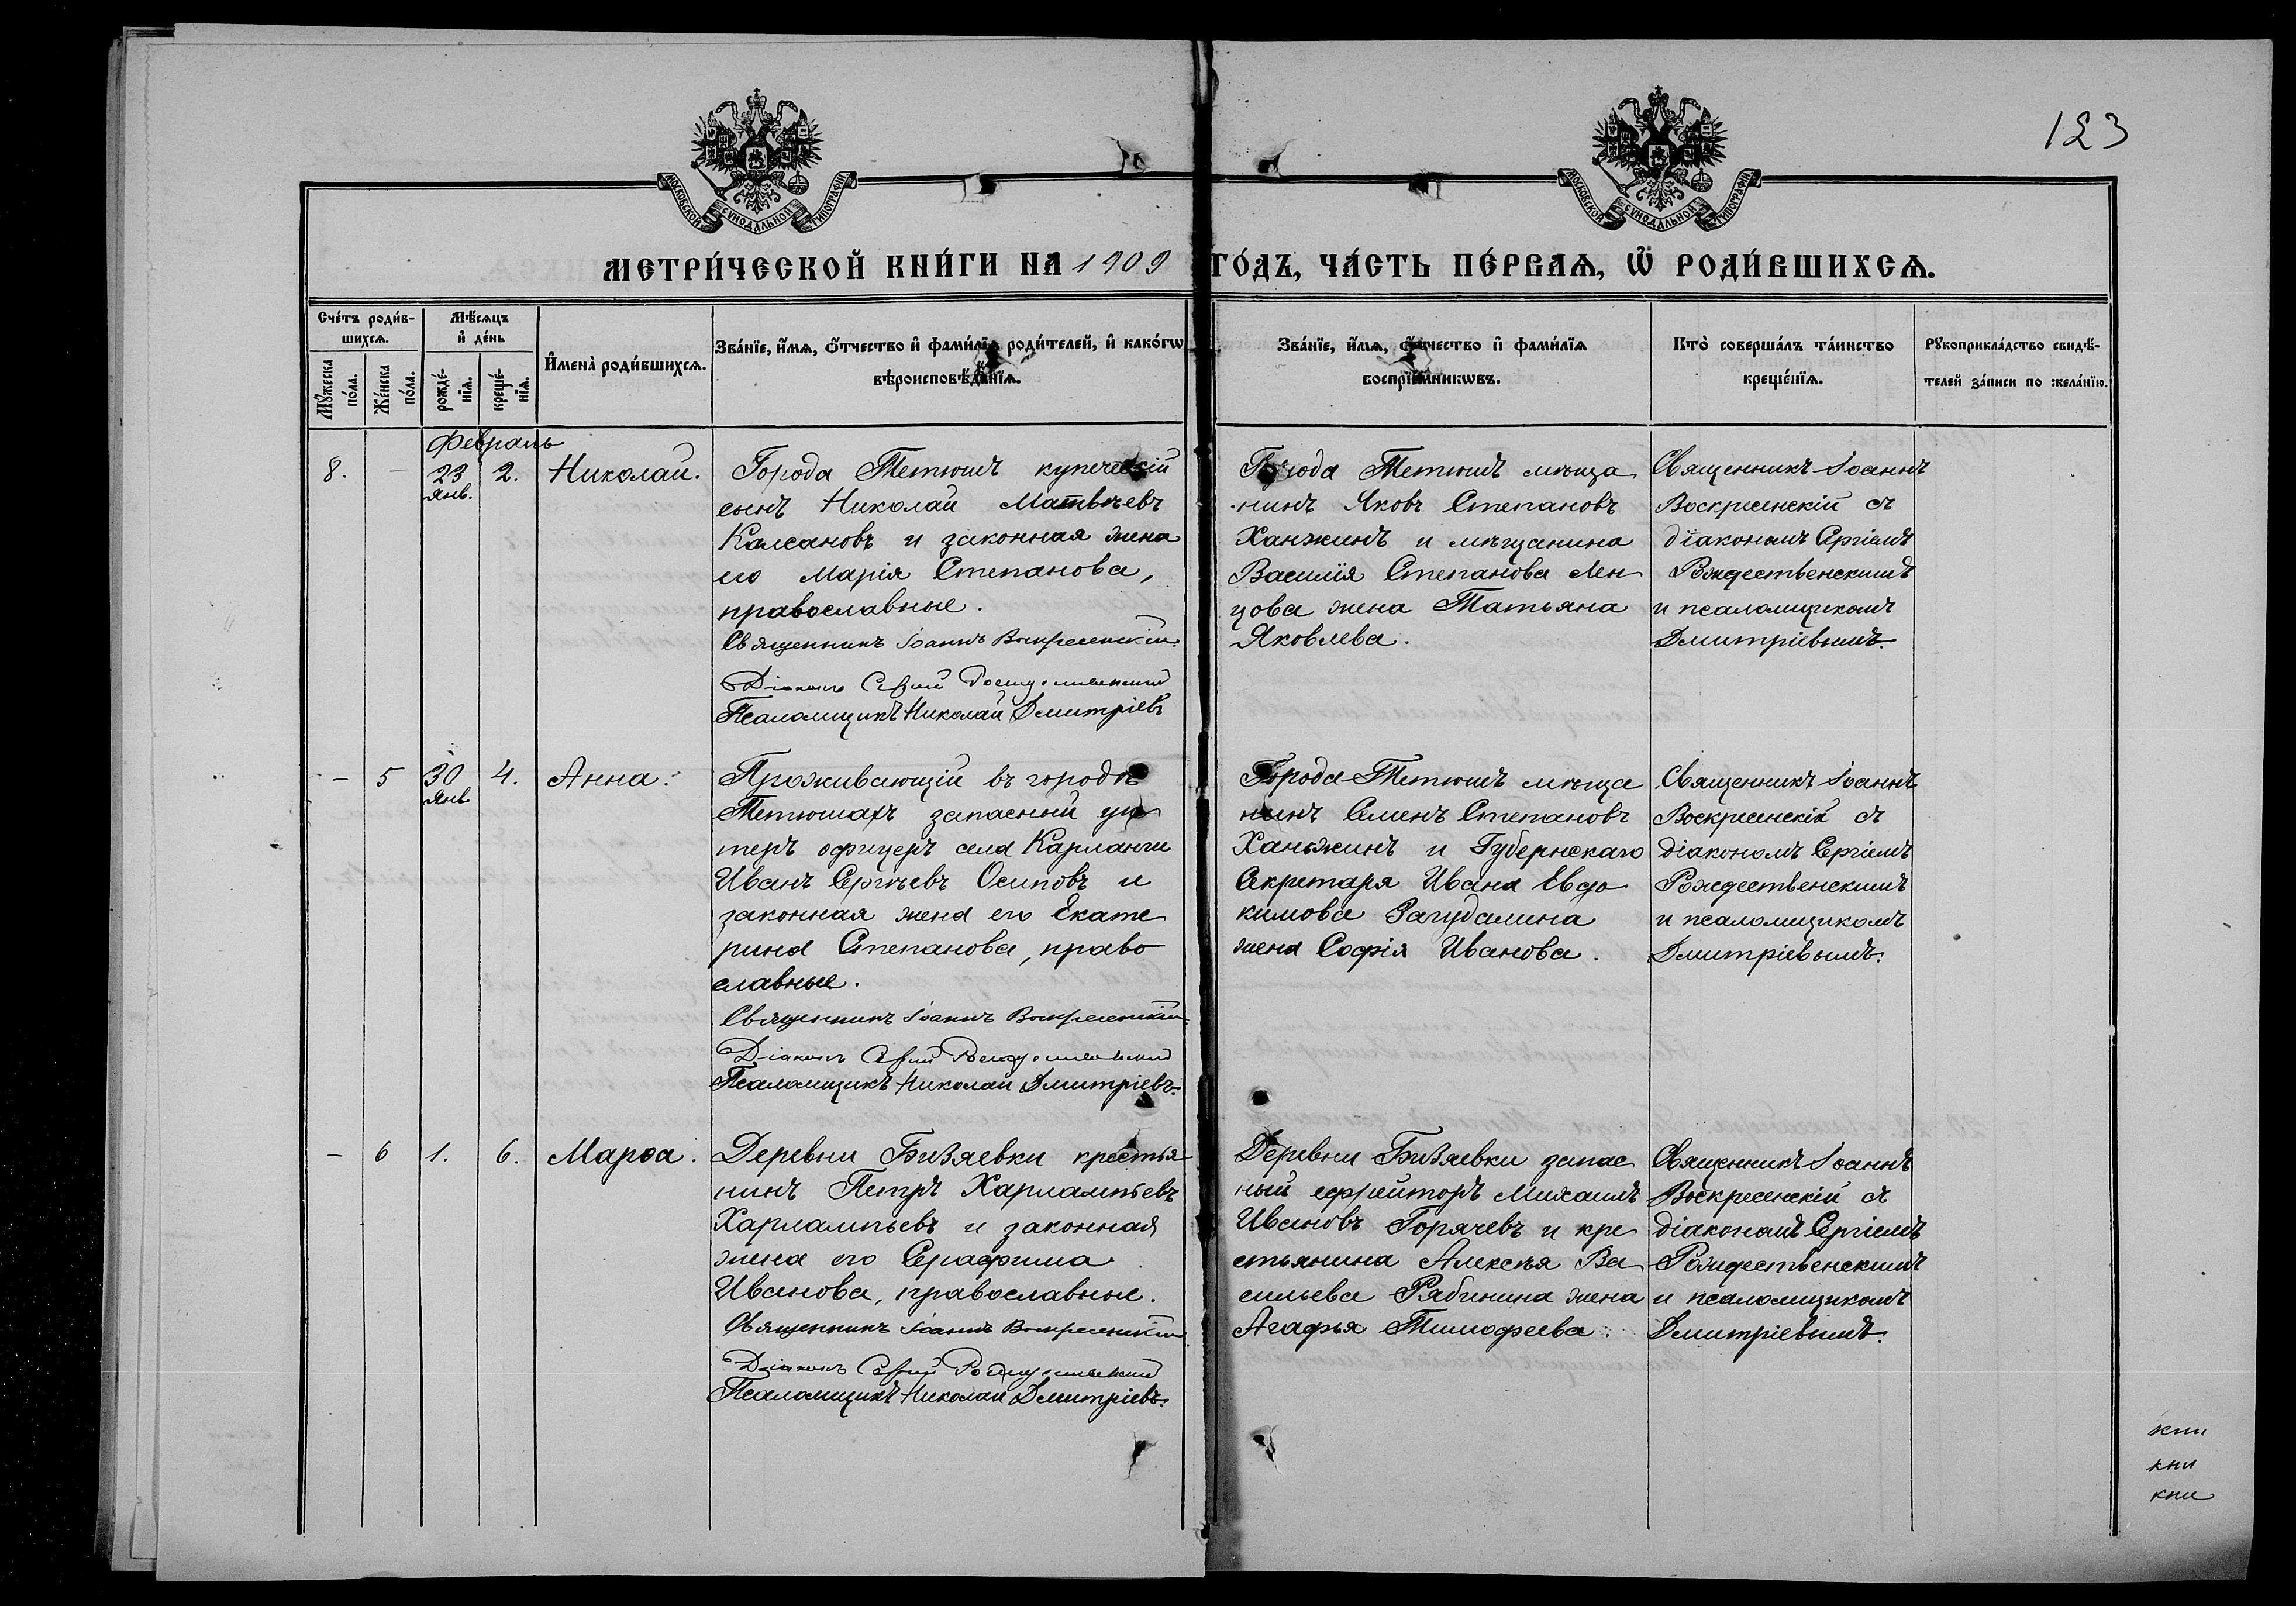 123
МОСКОВСКОЙ СѴНОДАЛЬНОЙ ТИПОГРАФІИ
МОСКОВСКОЙ СѴНОДАЛЬНОЙ ТИПОГРАФІИ
МЕТРИ́ЧЕСКОЙ КНИ́ГИ НА 1909 ГО́ДЪ, ЧА́СТЬ ПЕ́РВАѦ, Ѿ РОДИ́ВШИХСѦ.
Сче́тъ роди́в-
шихсѧ.
Мꙋ́жеска
по́ла.
Же́нска
по́ла.
Мѣ́сѧцъ
и҆ де́нь
рожде́-
нїѧ.
креще́-
нїѧ.
И҆мена̀ роди́вшихсѧ.
Зва́нїе, и҆́мѧ, ѻ҆́тчество и҆ фами́лїѧ роди́телей, и҆ како́гѡ
вѣроисповѣ́данїѧ.
Зва́нїе, и҆́мѧ, ѻ҆́тчество и҆ фами́лїѧ
воспрїе́мникѡвъ.
Кто̀ соверша́лъ та́инство
креще́нїѧ.
Рꙋкоприкла́дство свидѣ́-
телей за́писи по жела́нїю.
Февраль
8.
-
23
Янв.
2.
Николай.
Города Тетюшъ купеческій
сынъ Николай Матвѣевъ
Калсановъ и законная жена
его Марія Степанова,
православные.
Священникъ Іоаннъ Воскресенскій
Діаконъ Сергій Рождественскій
Псаломщикъ Николай Дмитріевъ
Города Тетюшъ мѣща
нинъ Яковъ Степановъ
Ханжинъ и мѣщанина
Василія Степанова Лен
цова жена Татьяна
Яковлева.
Священникъ Іоаннъ
Воскресенскій съ
діакономъ Сергіемъ
Рождественскимъ
и псаломщикомъ
Дмитріевымъ.
-
5
30
Янв
4.
Анна.
Проживающій въ городѣ
Тетюшахъ запасный ун
теръ офицеръ села Карланги
Иванъ Сергѣевъ Осиповъ и
законная жена его Екате
рина Степанова, право
славные.
Священникъ Іоаннъ Воскресенскій
Діаконъ Сергій Рождественскій
Псаломщикъ Николай Дмитріевъ.
Города Тетюшъ мѣща
нинъ Семенъ Степановъ
Ханжинъ и Губернскаго
Секретаря Ивана Евдо
кимова Загудалина
жена Софія Иванова.
Священникъ Іоаннъ
Воскресенскій съ
діакономъ Сергіемъ
Рождественскимъ
и псаломщикомъ
Дмитріевымъ.
-
6
1.
6.
Марѳа.
Деревни Бизяевки крестья
нинъ Петръ Харлампьевъ
Харлампьевъ и законная
жена его Серафима
Иванова, православные.
Священникъ Іоаннъ Воскресенскій
Діаконъ Сергій Рождественскій
Псаломщикъ Николай Дмитріевъ.
Деревни Бизяевки запас
ный ефрейторъ Михаилъ
Ивановъ Горячевъ и кре
стьянина Алексѣя Ва
сильева Рябинина жена
Агафья Тимофеева.
Священникъ Іоаннъ
Воскресенскій съ
діакономъ Сергіемъ
Рождественскимъ
и псаломщикомъ
Дмитріевымъ.
кни
кни
кни